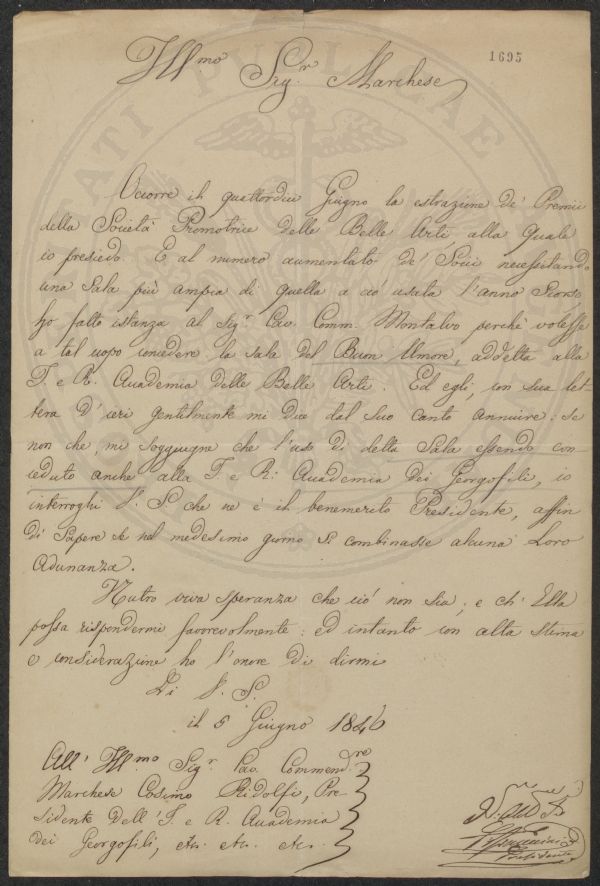 1695
Ill.mo Sig.r Marchese
Occorre il quattordici Giugno la estrazione de' Premii
della Società Promotrice delle Belle Arti alla quale
io presiedo. E al numero aumentato de' Socii necessitando
una Sala più ampia di quella a ciò usata l'anno Scorso,
ho fatto istanza al Sig.r Cav. Comm. Montalvo perchè volesse
a tal uopo concedere la sala del Buon Umore, addetta alla
I. e R. Accademia delle Belle Arti. Ed egli, con sua let-
tera d'ieri gentilmente mi dice dal suo canto annuire: se
non che, mi soggiugne che l'uso di detta Sala essendo con-
ceduto anche alla I. e R. Accademia dei Georgofili, io
interroghi V. S. che ne è il benemerito Presidente, affin
di Sapere se nel medesimo giorno si combinasse alcuna Loro
Adunanza.
Nutro viva speranza che ciò non sia; e ch'Ella
possa rispondermi favorevolmente: ed intanto con alta stima
e considerazione ho l'onore di dirmi
Di V. S.
il 5 Giugno 1846
All' Ill.mo Sig.r Cav. Commend.re
Marchese Cosimo Ridolfi, Pre-
sidente dell' I. e R. Accademia
dei Georgofili, etc. etc. etc.
Presidente